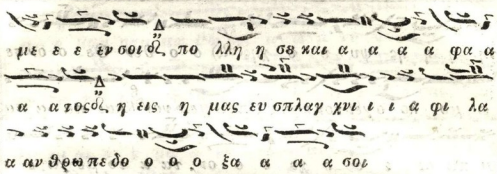 με ε ε εν σοι δς πο λλη η σου και α α α α φα α
α α τος δς η εις η μας ευ σπλαγ χνι ι ι α φι λα
α αν θρω πε δο ο ο ο ξα α α α σοι